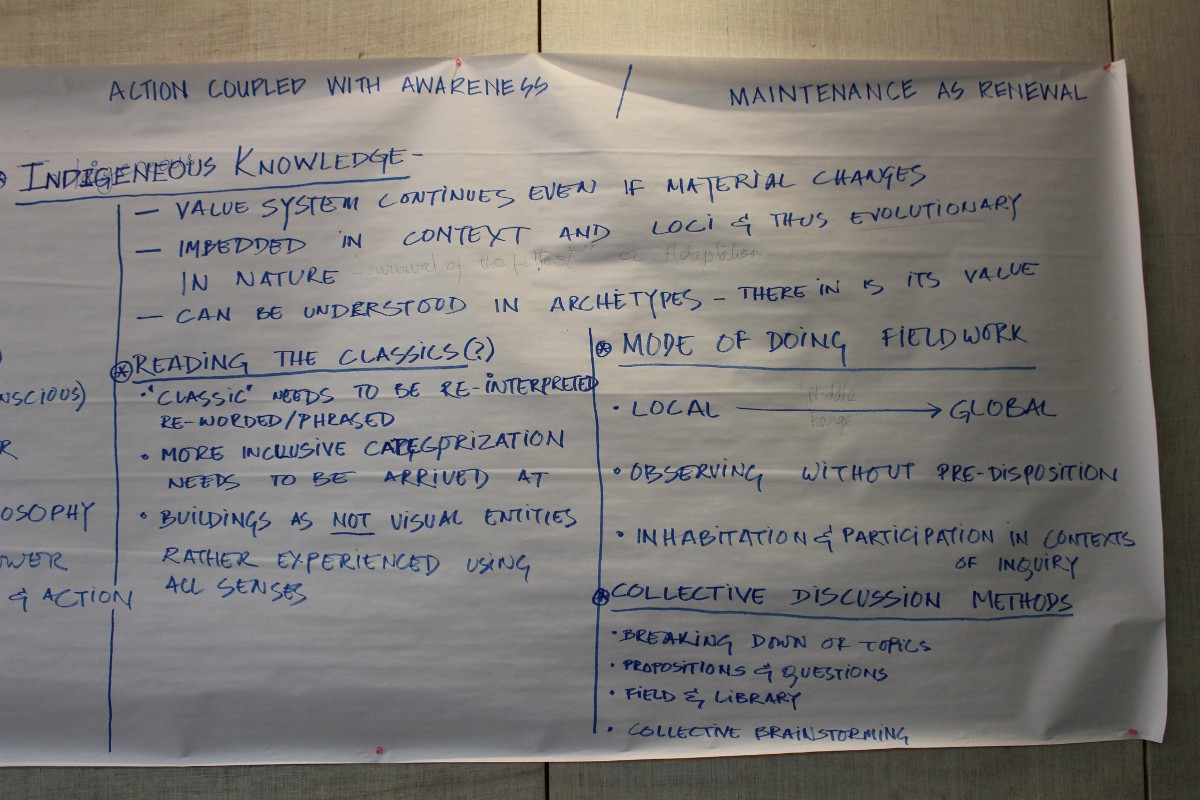 ACTION COUPLED WITH AWARENESS / MAINTENANCE AS RENEWAL
INDIGENEOUS KNOWLEDGE -
— VALUE SYSTEM CONTINUES EVEN IF MATERIAL CHANGES
— IMBEDDED IN CONTEXT AND LOCI & THUS EVOLUTIONARY
IN NATURE "survival of the fittest" or Adaptation
— CAN BE UNDERSTOOD IN ARCHETYPES – THERE IN IS ITS VALUE
NSCIOUS)
R
OSOPHY
OWER
& ACTION
READING THE CLASSICS(?)
• "CLASSIC" NEEDS TO BE RE-INTERPRETED
RE-WORDED/PHRASED
• MORE INCLUSIVE CATEGORIZATION
NEEDS TO BE ARRIVED AT
• BUILDINGS AS NOT VISUAL ENTITIES
RATHER EXPERIENCED USING
ALL SENSES
MODE OF DOING FIELDWORK
Middle
• LOCAL → GLOBAL
range
• OBSERVING WITHOUT PRE-DISPOSITION
• INHABITATION & PARTICIPATION IN CONTEXTS
OF INQUIRY
COLLECTIVE DISCUSSION METHODS
• BREAKING DOWN OF TOPICS
• PROPOSITIONS & QUESTIONS
• FIELD & LIBRARY
• COLLECTIVE BRAINSTORMING